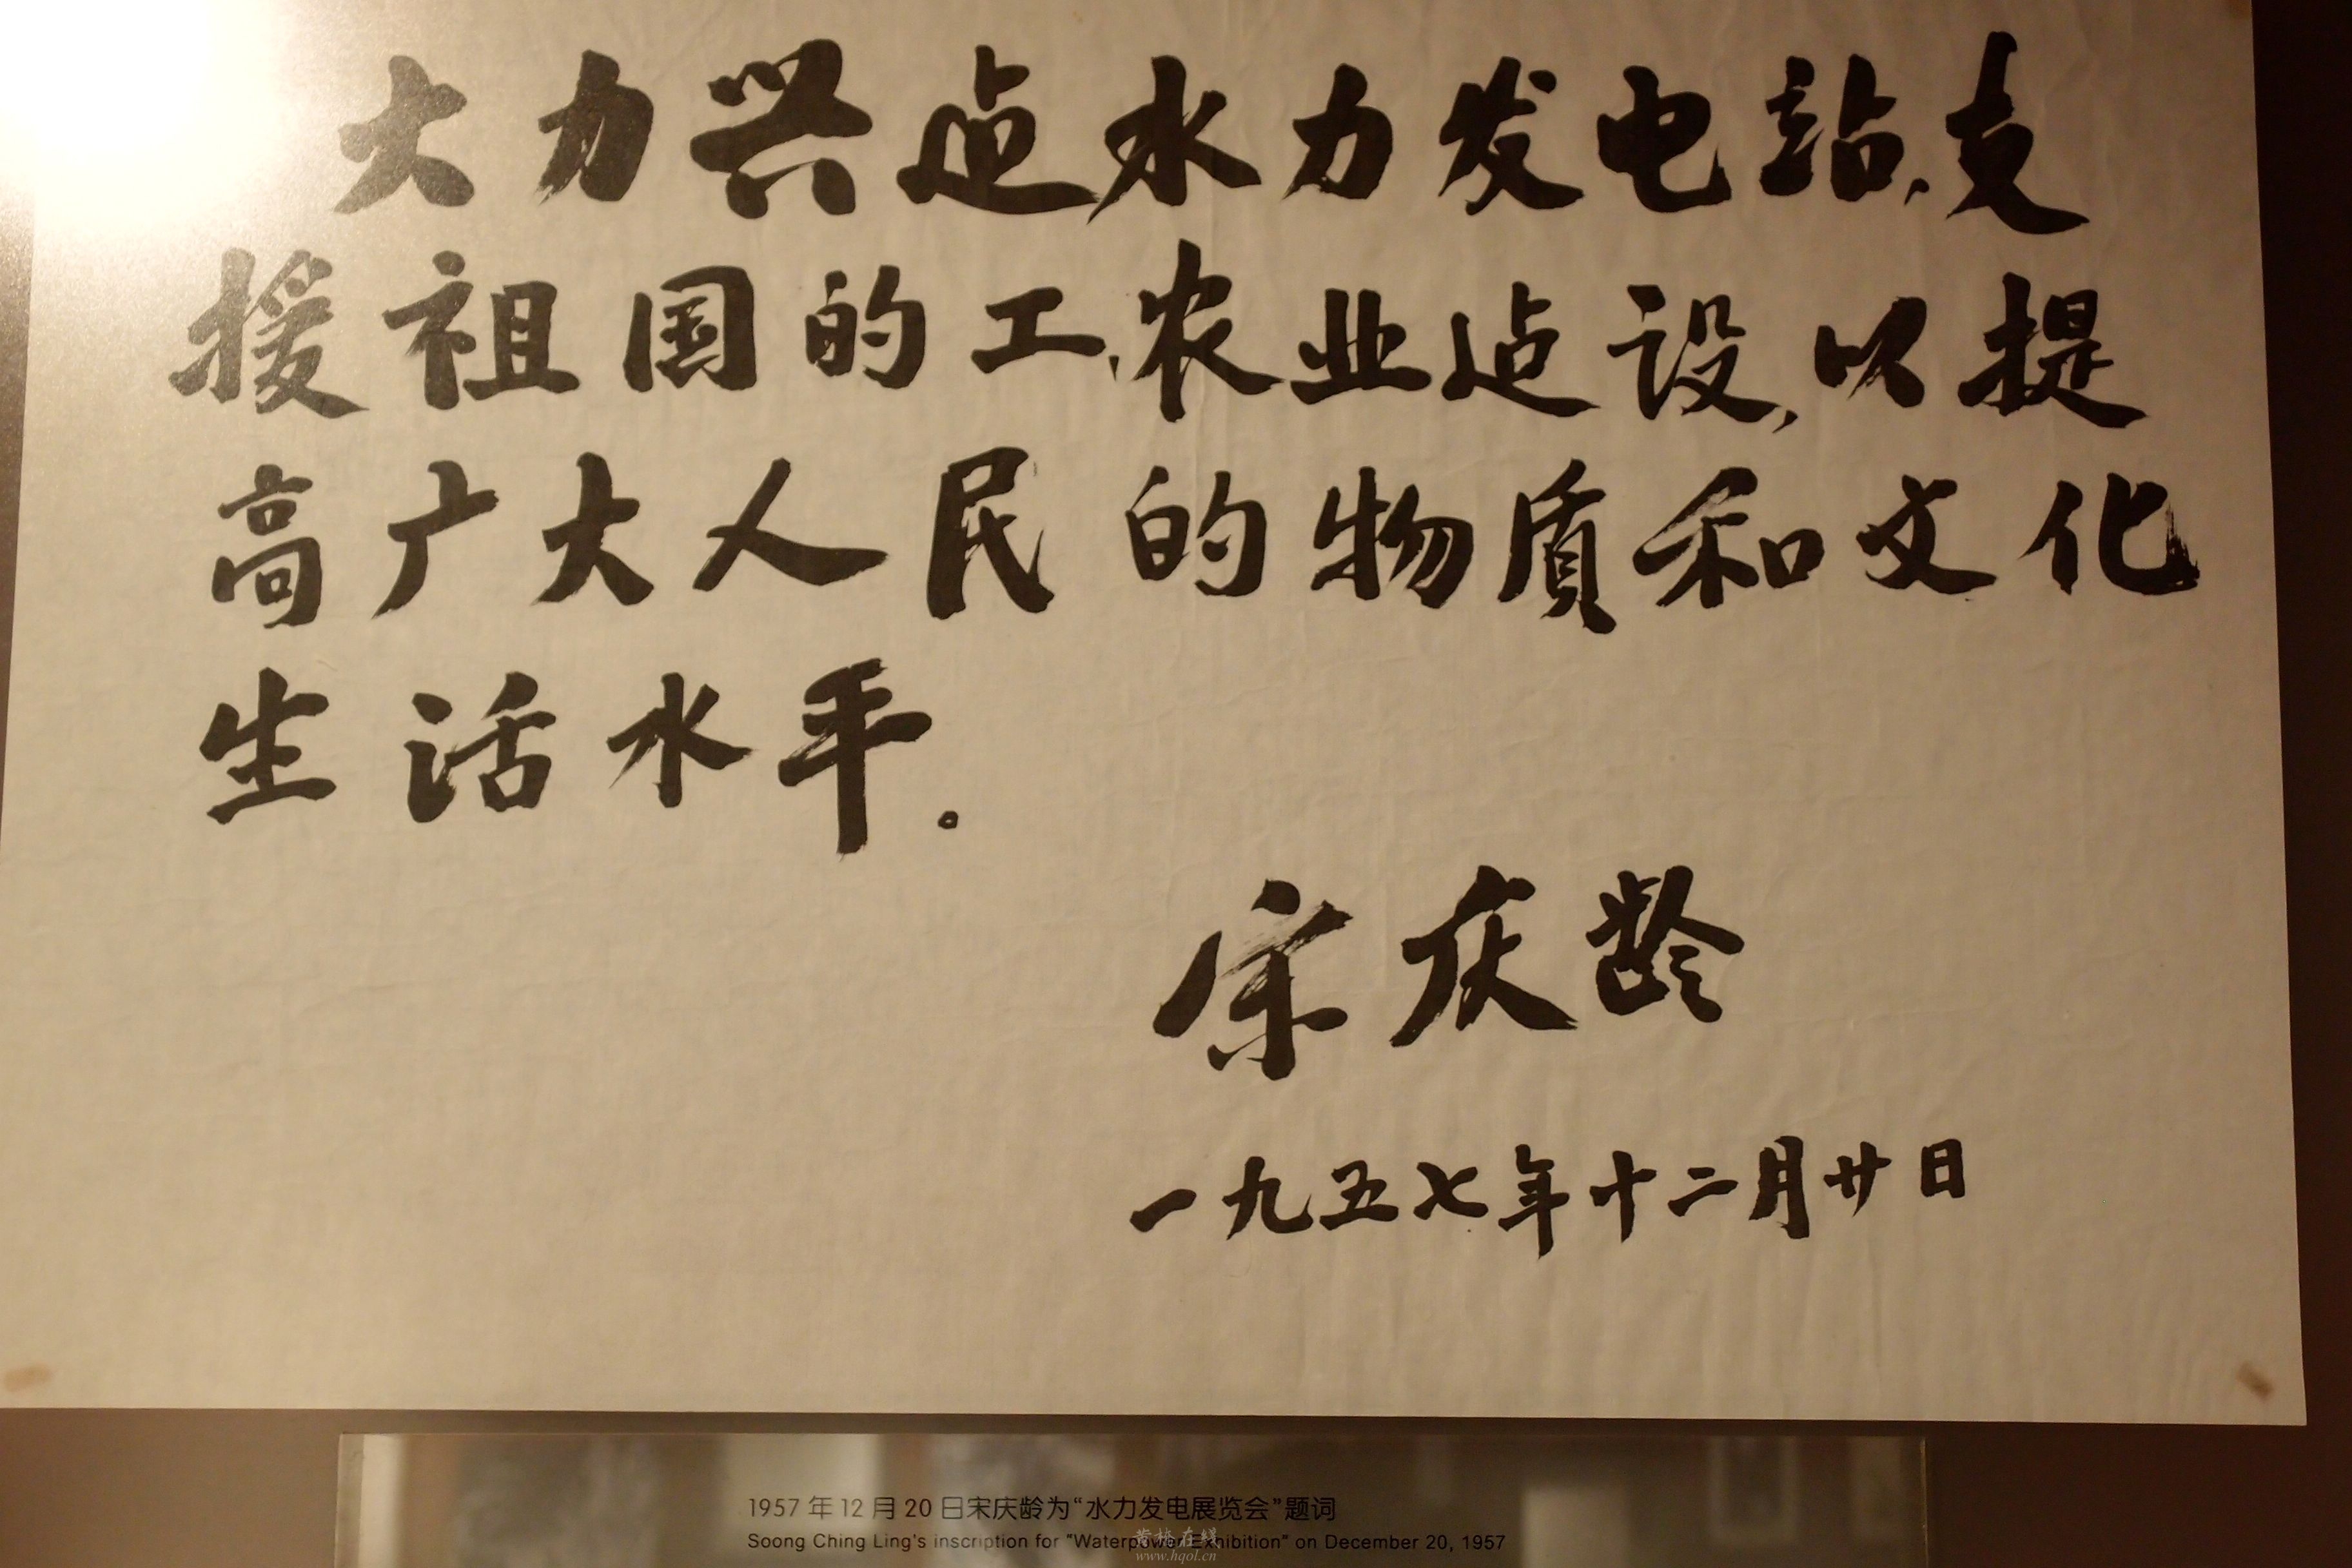 大力兴建水力发电站,支
援祖国的工、农业建设,以提
高广大人民的物质和文化
生活水平。
宋庆龄
一九五七年十二月廿日
1957 年 12 月 20 日宋庆龄为“水力发电展览会”题词
Soong Ching Ling's inscription for "Waterpower Exhibition" on December 20, 1957
黄格在线
www.hqol.cn